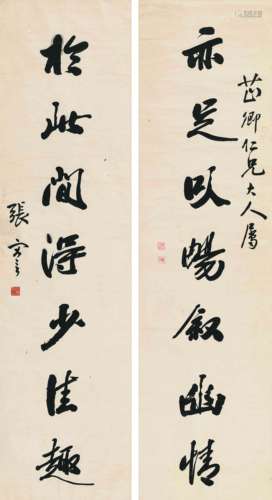 卿仁兄大人属
亦足以暢叙幽情
於此間得少佳趣
張謇